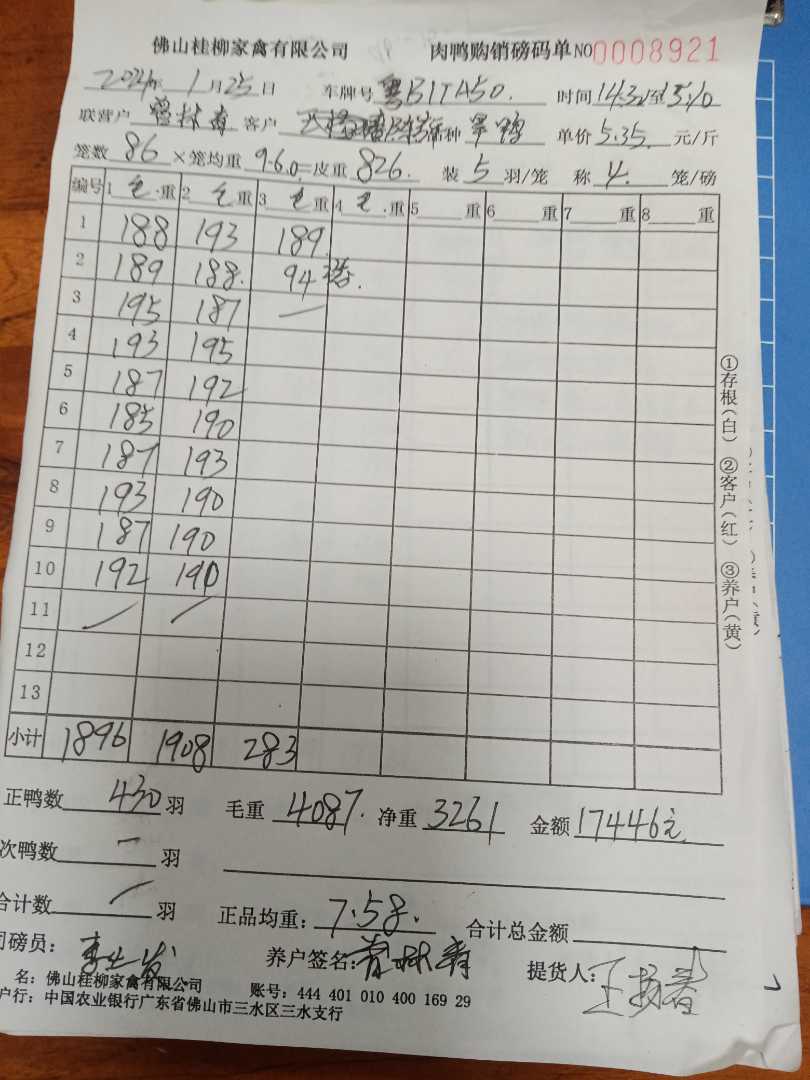 佛山桂柳家禽有限公司 肉鸭购销磅码单 NO 0008921
2024年 1月25日 车牌号 粤B1TA50. 时间 14:32至15:10
联营户 客户 种 单价 5.35 元/斤
笼数 86 ×笼均重 9.6.0=皮重 826. 装 5 羽/笼 称 4. 笼/磅
编号 1 毛.重 2 毛重 3 毛重 4 毛.重 5 重 6 重 7 重 8 重
1 188 193 189.
2 189 188. 94
3 195 187 —
4 193 195
5 187 192
6 185 190
7 187 193
8 193 190
9 187 190
10 192 190
11
12
13
小计 1896 1908 283
正鸭数 430 羽 毛重 4087. 净重 3261 金额 17446元
次鸭数 羽
合计数 羽 正品均重: 7.58. 合计总金额
司磅员: 养户签名: 提货人:
名: 佛山桂柳家禽有限公司 账号: 444 401 010 400 169 29
户行: 中国农业银行广东省佛山市三水区三水支行
①存根(白) ②客户(红) ③养户(黄)